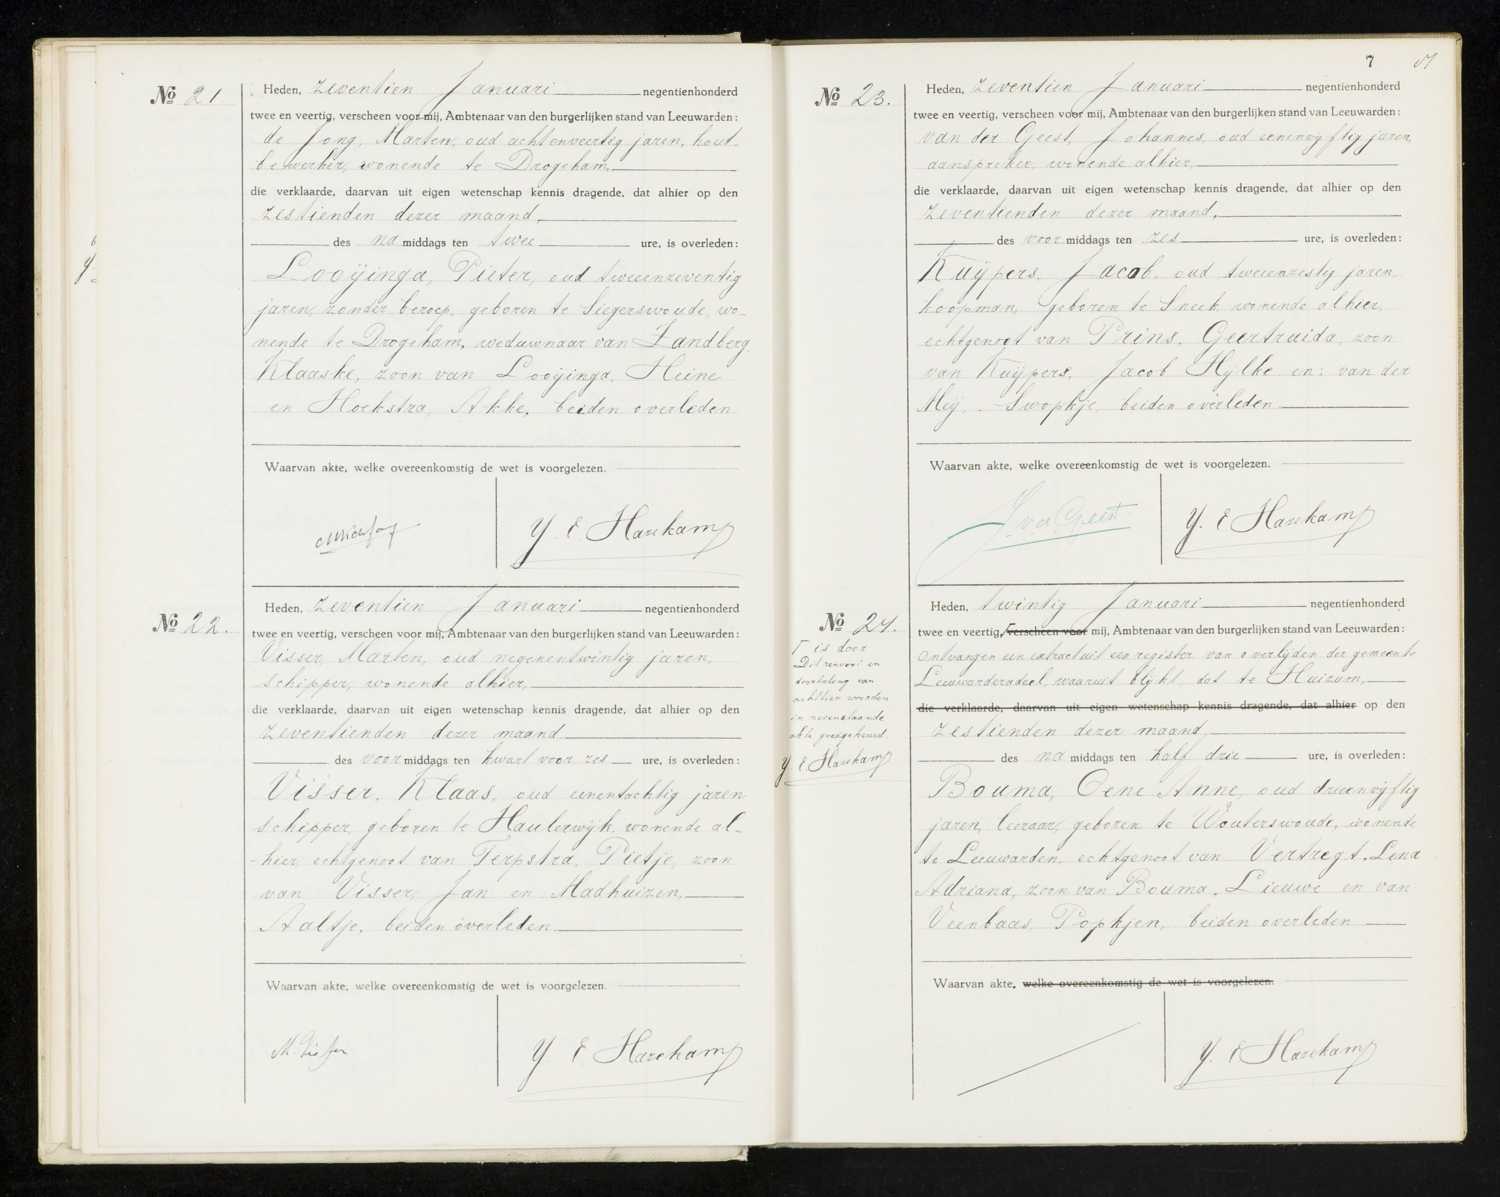 No 21
Heden, zeventien Januari negentienhonderd
twee en veertig, verscheen voor mij, Ambtenaar van den burgerlijken stand van Leeuwarden:
de Jong, Marten, oud achtenveertig jaren, hout-
bewerker, wonende te Drogeham,
die verklaarde, daarvan uit eigen wetenschap kennis dragende, dat alhier op den
zestienden dezer maand,
des namiddags ten twee ure, is overleden:
Looÿinga, Pieter, oud tweeenzeventig
jaren, zonder beroep, geboren te Siegerswoude, wo-
nende te Drogeham, weduwnaar van Zandberg
Klaaske, zoon van Looÿinga, Heine
en Hoekstra, Akke, beiden overleden
Waarvan akte, welke overeenkomstig de wet is voorgelezen.
Y. E. Harekamp
No 22.
Heden, zeventien Januari negentienhonderd
twee en veertig, verscheen voor mij, Ambtenaar van den burgerlijken stand van Leeuwarden:
Visser, Marten, oud negenentwintig jaren,
schipper, wonende alhier,
die verklaarde, daarvan uit eigen wetenschap kennis dragende, dat alhier op den
zeventienden dezer maand
des voormiddags ten kwart voor zes ure, is overleden:
Visser, Klaas, oud eenentachtig jaren
schipper, geboren te Haulerwijk, wonende al-
hier, echtgenoot van Terpstra, Pietje, zoon
van Visser, Jan en Madhuizen,
Aaltje, beiden overleden
Waarvan akte, welke overeenkomstig de wet is voorgelezen.
M. Visser
Y. E. Harekamp
7
No 23.
Heden, zeventien Januari negentienhonderd
twee en veertig, verscheen voor mij, Ambtenaar van den burgerlijken stand van Leeuwarden:
van der Geest, Johannes, oud eenenvijftig jaren,
aanspreker, wonende alhier,
die verklaarde, daarvan uit eigen wetenschap kennis dragende, dat alhier op den
zeventienden dezer maand,
des voormiddags ten zes ure, is overleden:
Kuÿpers, Jacob, oud tweeenzestig jaren,
koopman, geboren te Sneek, wonende alhier,
echtgenoot van Prins, Geertruida, zoon
van Kuÿpers, Jacob Hylke en: van der
Meij, Swopkje, beiden overleden
Waarvan akte, welke overeenkomstig de wet is voorgelezen.
J. v. d. Geest
Y. E. Harekamp
No 24.
Heden, twintig Januari negentienhonderd
twee en veertig, verscheen voor mij, Ambtenaar van den burgerlijken stand van Leeuwarden:
ontvangen een extract uit een register van overlijden der gemeente
Leeuwarderadeel, waaruit blijkt, dat te Huizum,
die verklaarde, daarvan uit eigen wetenschap kennis dragende, dat alhier op den
zestienden dezer maand,
des namiddags ten half drie ure, is overleden:
Bouma, Oene Anne, oud drieenvijftig
jaren, leeraar, geboren te Wouterswoude, wonende
te Leeuwarden, echtgenoot van Vertregt, Lena
Adriana, zoon van Bouma, Lieuwe en van
Veenbaas, Popkjen, beiden overleden
Waarvan akte, welke overeenkomstig de wet is voorgelezen.
Y. E. Harekamp
is door
Dit renvooi en
doorhaling van
achttien woorden
in nevenstaande
akte goedgekeurd.
Y. E. Harekamp